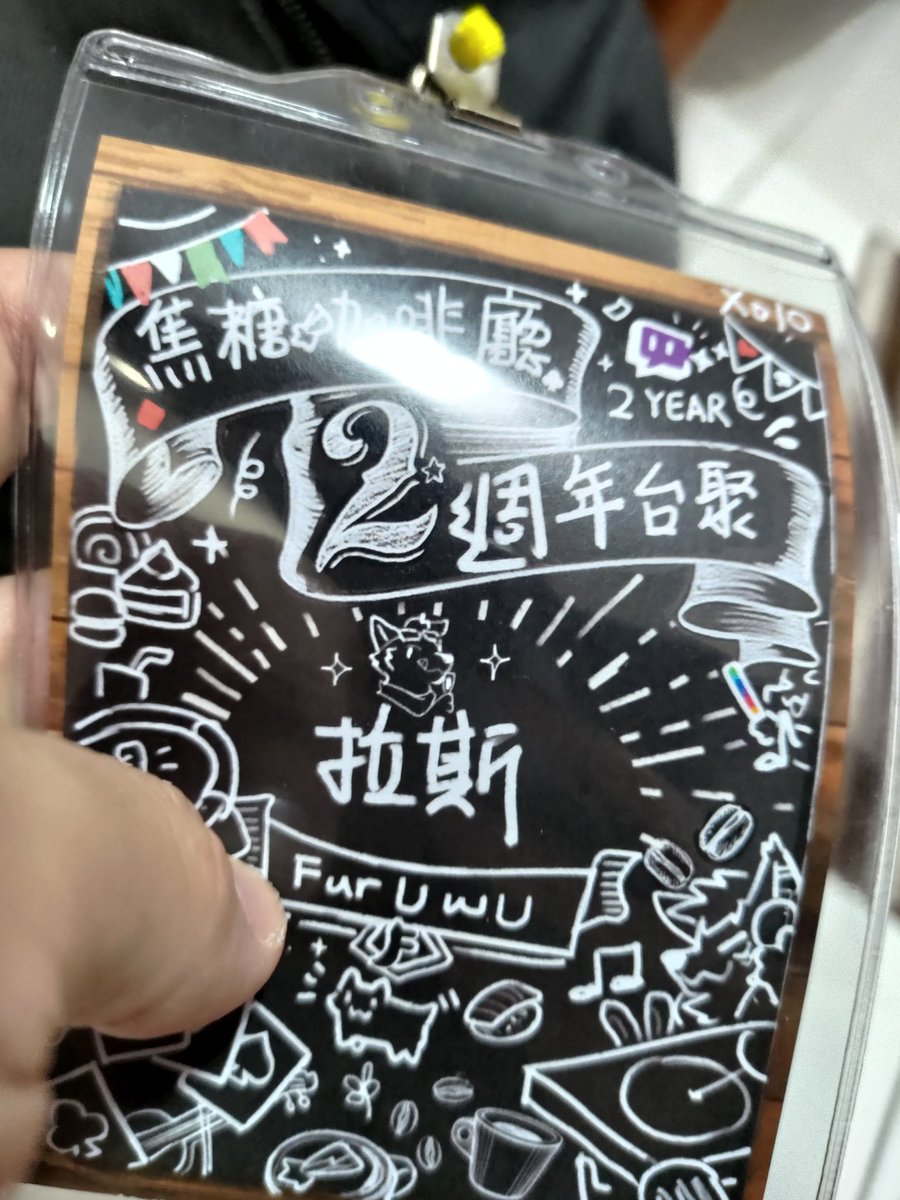 焦糖咖啡廳
Xolo
2 YEAR
2週年台聚
拉斯
Fur U wU